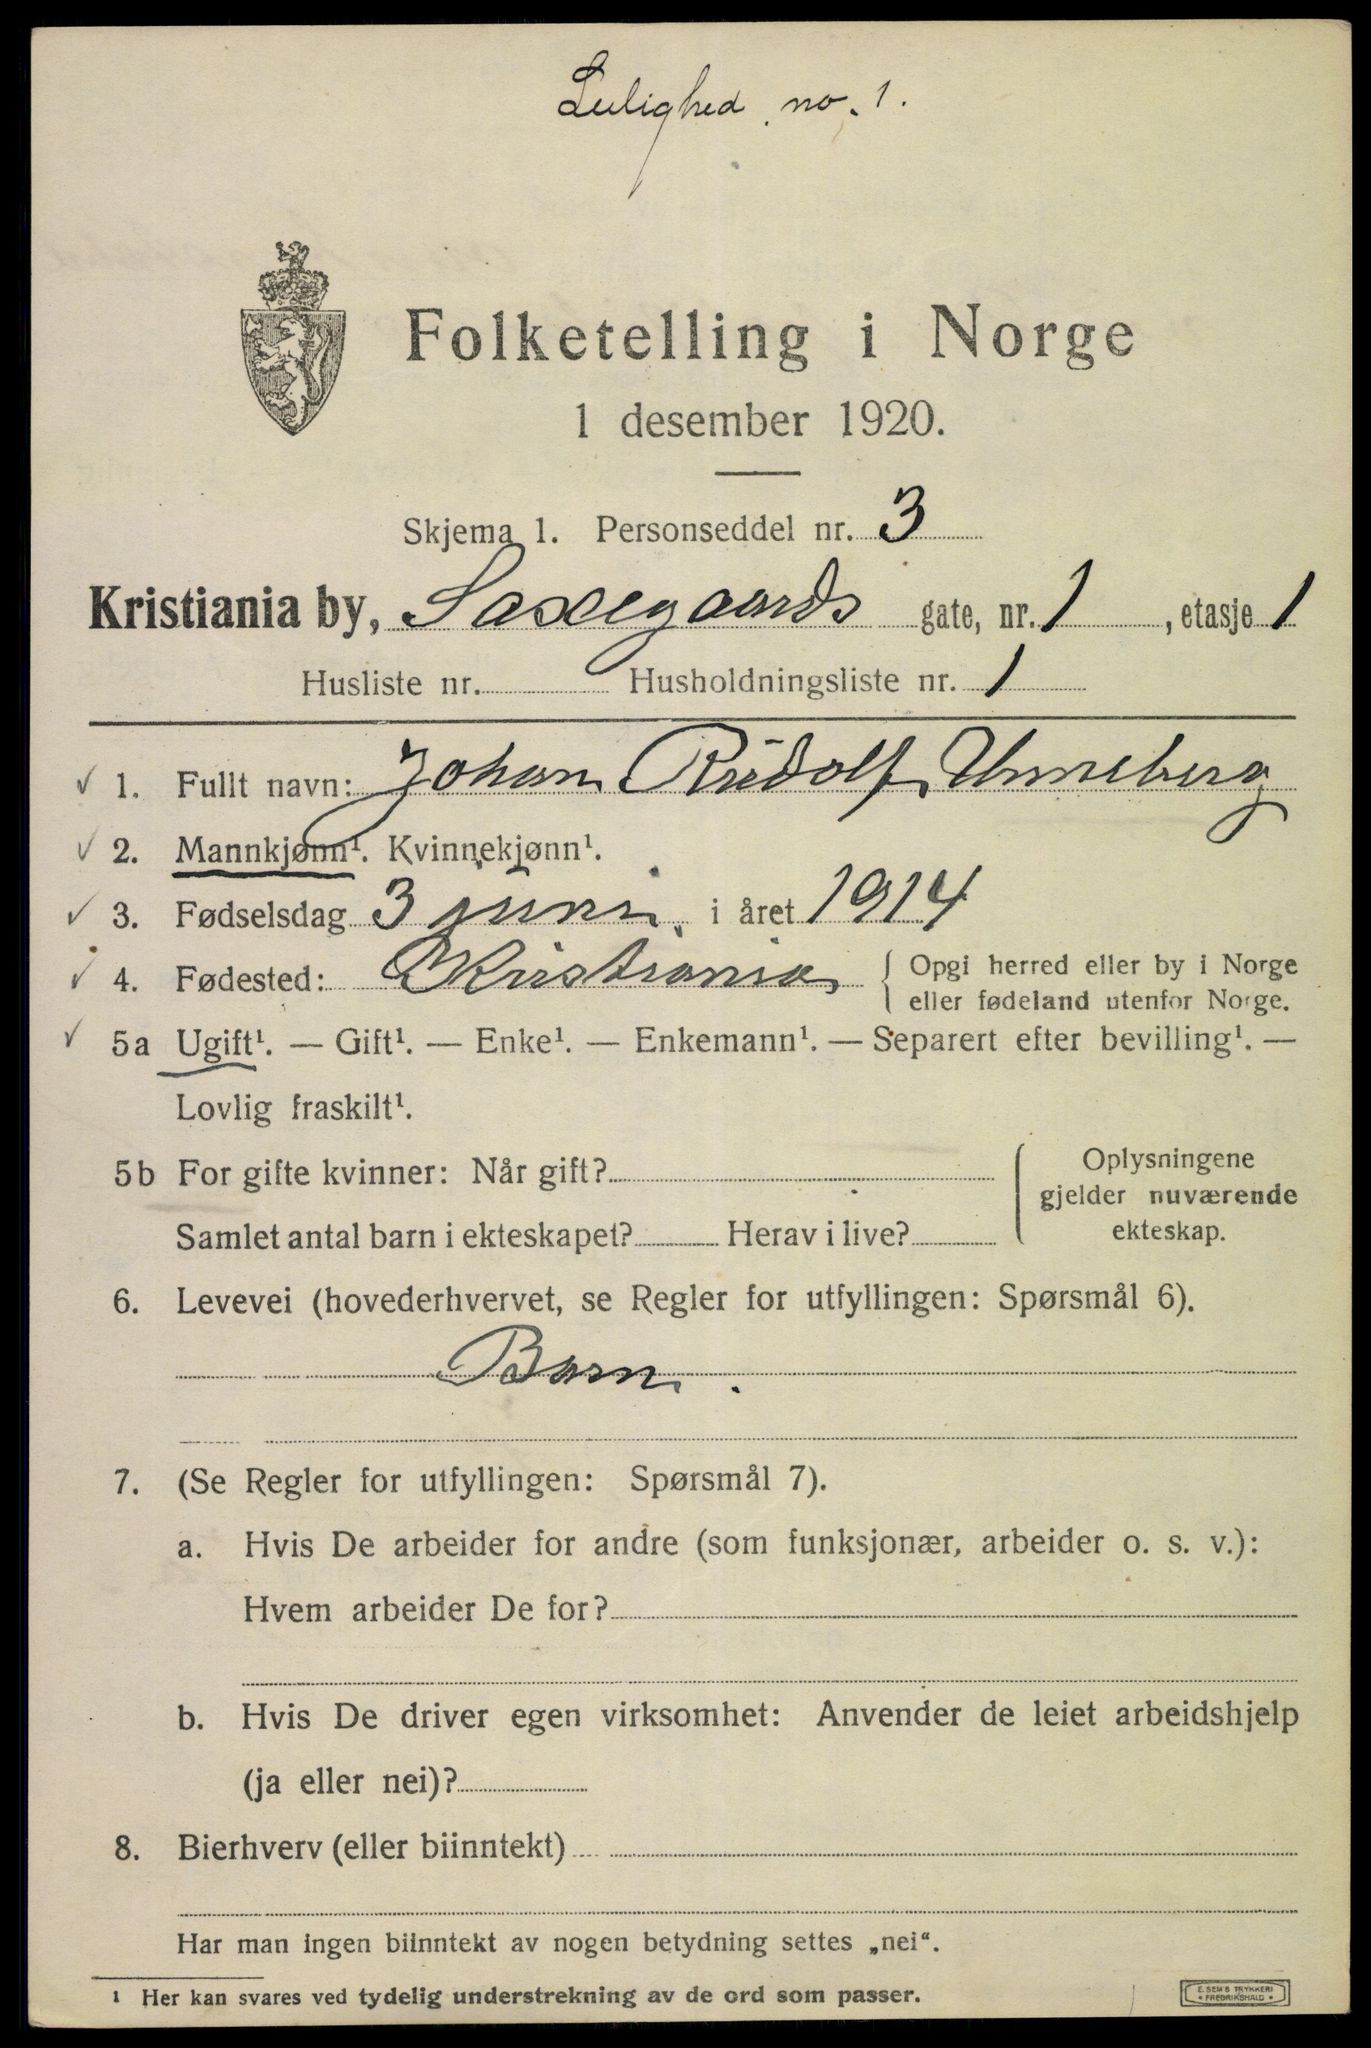 Leilighed no. 1.
Folketelling i Norge
1 desember 1920.
Skjema 1. Personseddel nr. 3
Kristiania by, Saxegaards gate, nr. 1, etasje 1
Husliste nr. Husholdningsliste nr. 1
1. Fullt navn: Johan Rudolf Unneberg
2. Mannkjønn¹. Kvinnekjønn¹.
3. Fødselsdag 3 juni i året 1914
4. Fødested: Kristiania { Opgi herred eller by i Norge
eller fødeland utenfor Norge.
5a Ugift¹. — Gift¹. — Enke¹. — Enkemann¹. — Separert efter bevilling¹. —
Lovlig fraskilt¹.
5b For gifte kvinner: Når gift?
Samlet antal barn i ekteskapet? Herav i live?
Oplysningene
gjelder nuværende
ekteskap.
6. Levevei (hovederhvervet, se Regler for utfyllingen: Spørsmål 6).
Barn.
7. (Se Regler for utfyllingen: Spørsmål 7).
a. Hvis De arbeider for andre (som funksjonær, arbeider o. s. v.):
Hvem arbeider De for?
b. Hvis De driver egen virksomhet: Anvender de leiet arbeidshjelp
(ja eller nei)?
8. Bierhverv (eller biinntekt)
Har man ingen biinntekt av nogen betydning settes „nei“.
¹ Her kan svares ved tydelig understrekning av de ord som passer.
E. SEM'S TRYKKERI
FREDRIKSHALD